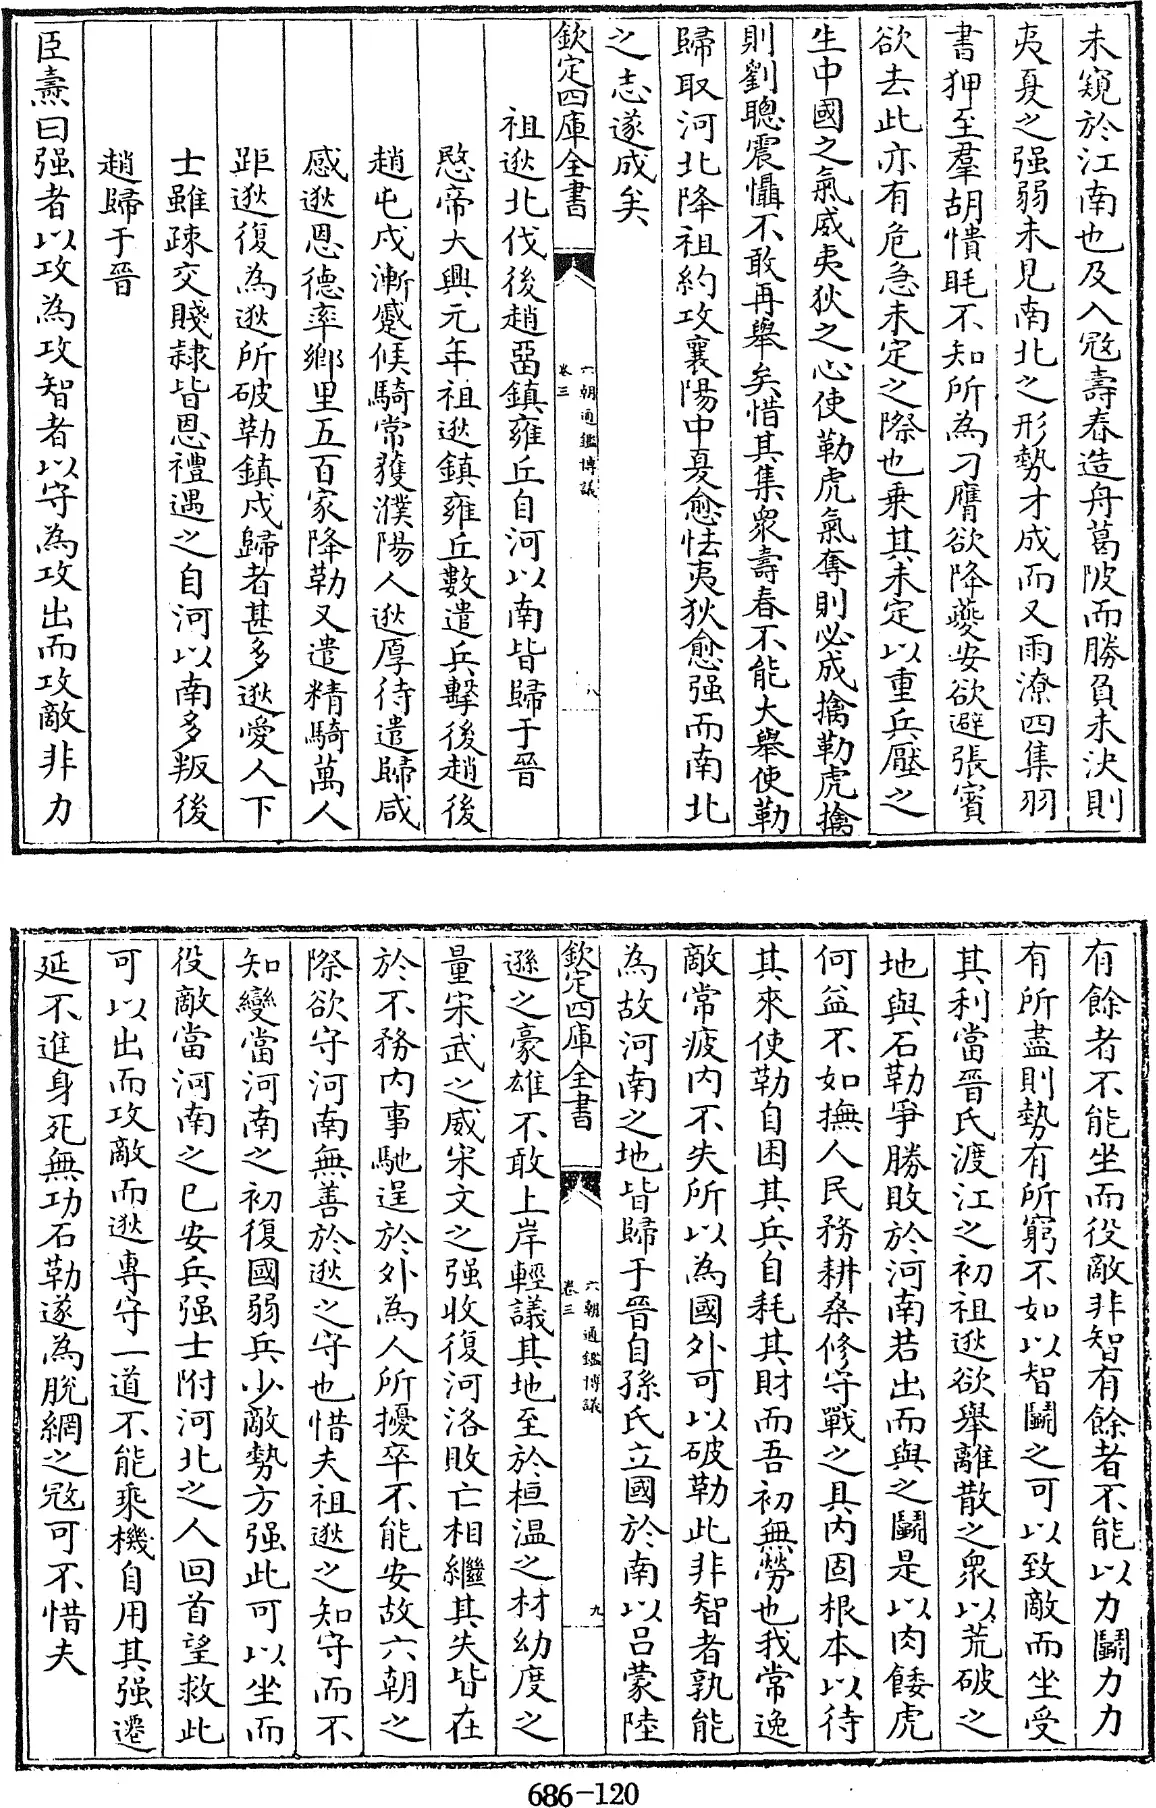 未窺於江南也及入冦壽春造舟葛陂而勝負未決則
夷夏之强弱未見南北之形勢才成而又雨潦四集羽
書狎至羣胡憒眊不知所為刁膺欲降夔安欲避張賓
欲去此亦有危急未定之際也乗其未定以重兵壓之
生中國之氣威夷狄之心使勒虎氣奪則必成擒勒虎擒
則劉聰震懾不敢再舉矣惜其集衆壽春不能大舉使勒
歸取河北降祖約攻襄陽中夏愈怯夷狄愈强而南北
之志遂成矣
欽定四庫全書
六朝通鑑博議
卷三
八
祖逖北伐後趙畱鎮雍丘自河以南皆歸于晉
愍帝大興元年祖逖鎮雍丘數遣兵擊後趙後
趙屯戍漸蹙候騎常獲濮陽人逖厚待遣歸咸
感逖恩德率鄉里五百家降勒又遣精騎萬人
距逖復為逖所破勒鎮戍歸者甚多逖愛人下
士雖疎交賤隸皆恩禮遇之自河以南多叛後
趙歸于晉
臣燾曰强者以攻為攻智者以守為攻出而攻敵非力
有餘者不能坐而役敵非智有餘者不能以力鬭力力
有所盡則勢有所窮不如以智鬭之可以致敵而坐受
其利當晉氏渡江之初祖逖欲舉離散之衆以荒破之
地與石勒爭勝敗於河南若出而與之鬭是以肉餧虎
何益不如撫人民務耕桑修守戰之具内固根本以待
其來使勒自困其兵自耗其財而吾初無勞也我常逸
敵常疲内不失所以為國外可以破勒此非智者孰能
為故河南之地皆歸于晉自孫氏立國於南以吕蒙陸
欽定四庫全書
六朝通鑑博議
卷三
九
遜之豪雄不敢上岸輕議其地至於桓温之材幼度之
量宋武之威宋文之强收復河洛敗亡相繼其失皆在
於不務内事馳逞於外為人所擾卒不能安故六朝之
際欲守河南無善於逖之守也惜夫祖逖之知守而不
知變當河南之初復國弱兵少敵勢方强此可以坐而
役敵當河南之已安兵强士附河北之人回首望救此
可以出而攻敵而逖專守一道不能乘機自用其强遷
延不進身死無功石勒遂為脱網之冦可不惜夫
686-120